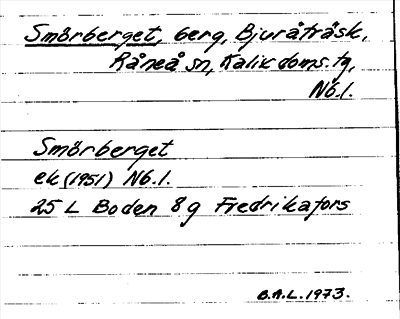 Smörberget, berg, Bjuråträsk,
Råneå sn, Kalix doms. tg,
Nb.l.
Smörberget
ek (1951) Nb.l.
25 L Boden 8 g Fredrikafors
B.A.L. 1973.